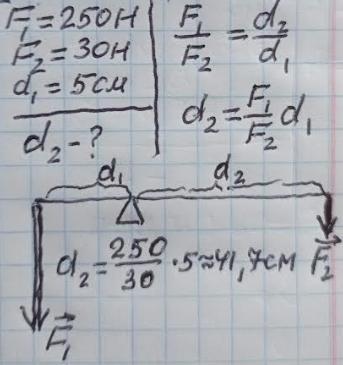 F₁=250Н
F₂=30Н
d₁=5см
d₂-?
F₁/F₂ = d₂/d₁
d₂=F₁/F₂ d₁
d₁
d₂
d₂=250/30·5≈41,7см
F⃗₂
F⃗₁